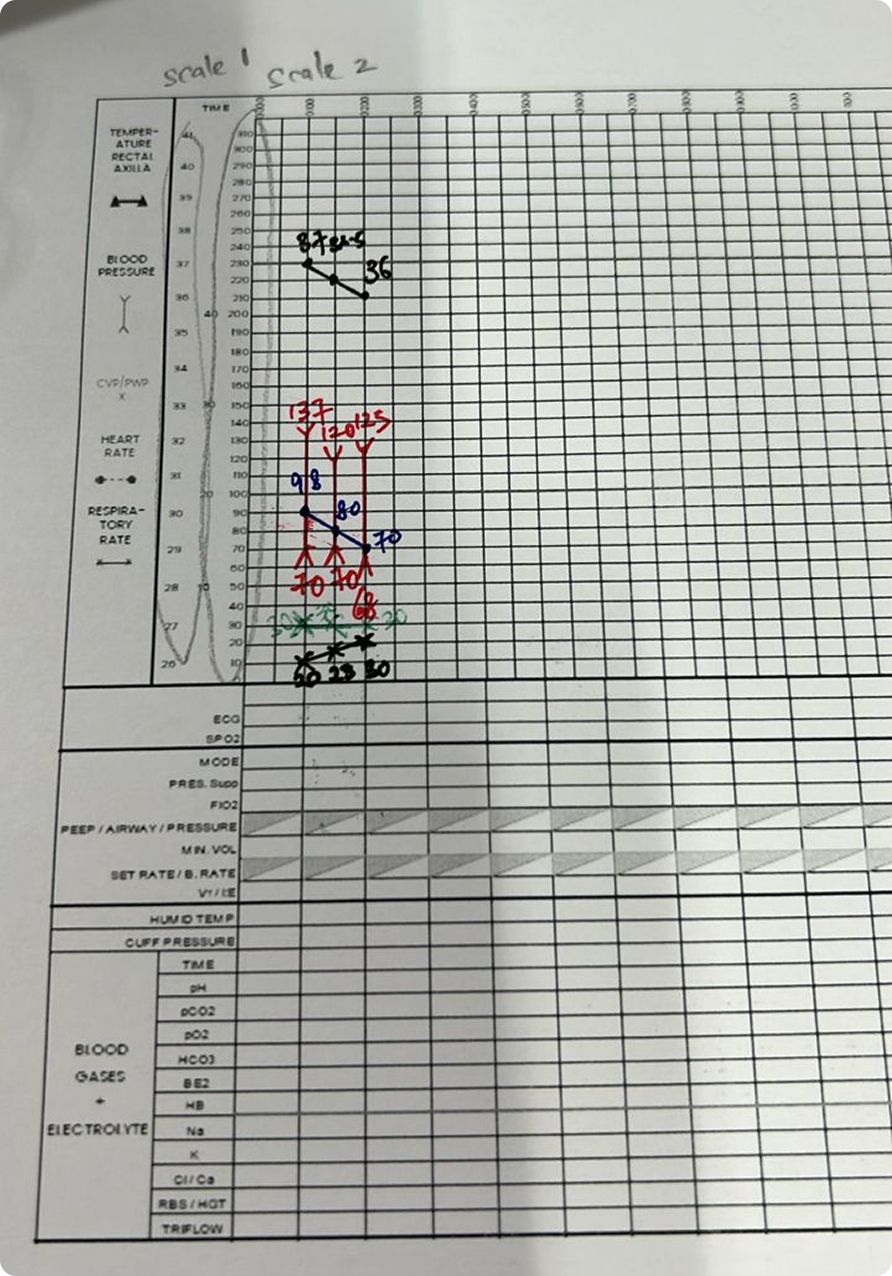 scale 1 scale 2
TIME
0100
0200
0300
0500
TEMPER-
ATURE
RECTAL
AXILLA
BLOOD
PRESSURE
CVP/PWP
X
HEART
RATE
RESPIRA-
TORY
RATE
41
40
39
38
37
36
35
34
33
32
31
30
29
28
27
26
40
30
20
10
310
300
290
280
270
260
250
240
230
220
210
200
190
180
170
160
150
140
130
120
110
100
90
80
70
60
50
40
30
20
10
36
137
120 125
98
80
70
70 70
68
30
ECG
SPO2
MODE
PRES. Supp
FIO2
PEEP / AIRWAY / PRESSURE
MIN. VOL
SET RATE / B. RATE
HUMID TEMP
CUFF PRESSURE
BLOOD
GASES
+
ELECTROLYTE
TIME
pH
pCO2
pO2
HCO3
BE2
HB
Na
K
Cl / Ca
RBS / HGT
TRIFLOW